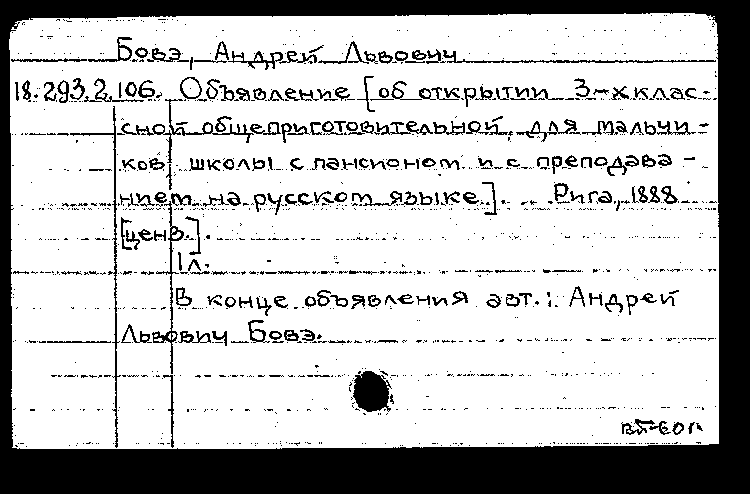 Бовэ, Андрей Львович
18.293.2.106. Объявление [об открытии 3-хклас-
сной общеприготовительной, для мальчи-
ков школы с пансионом и с преподава-
нием на русском языке]. Рига, 1888
[ценз.].
1 л.
В конце объявления авт.: Андрей
Львович Бовэ.